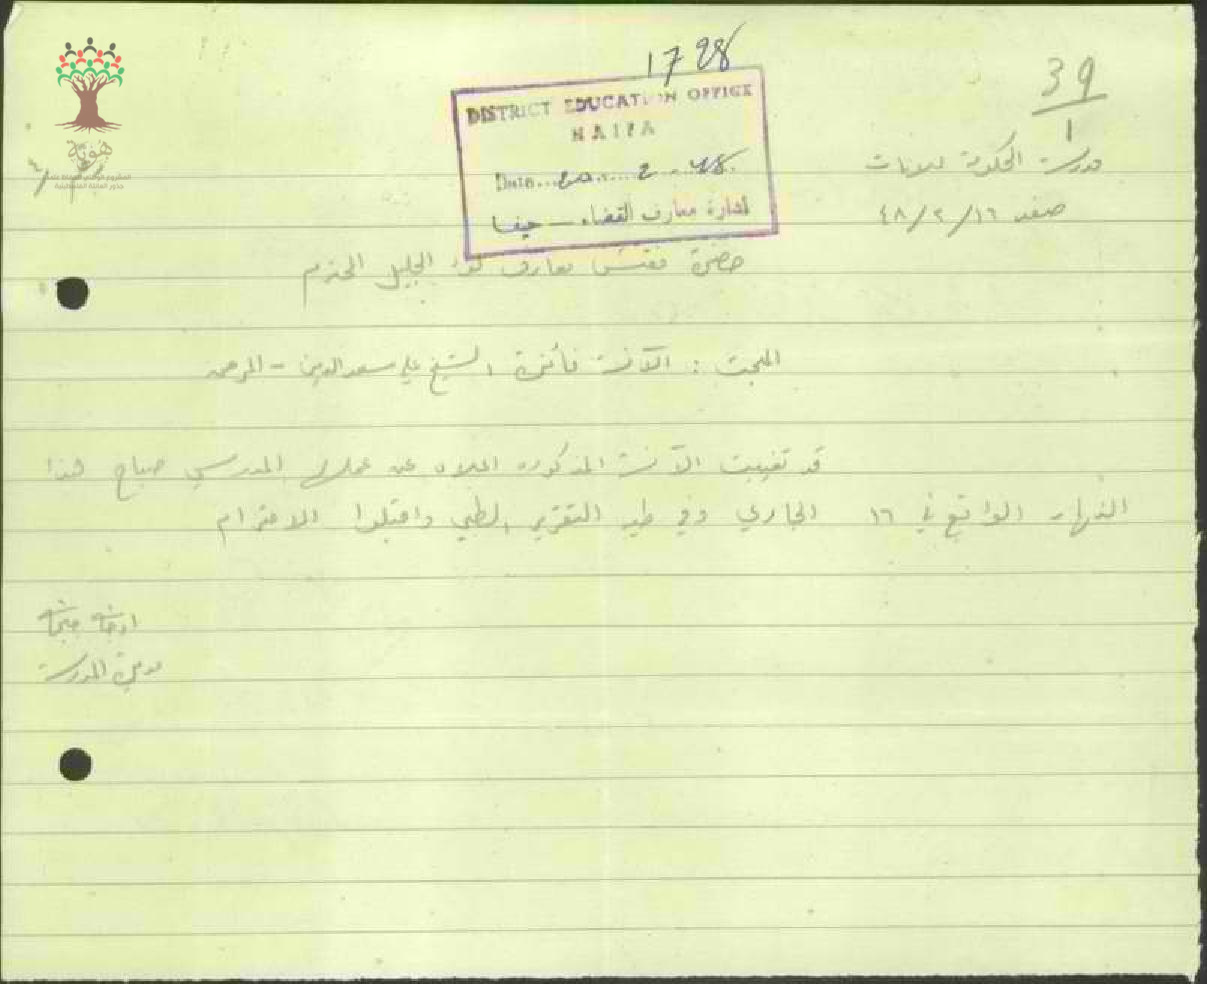 1728
39
1
DISTRICT EDUCATION OFFICE
HAIFA
Date... 20... 2 - 48.
ادارة معارف القضاء — حيفا
هوية
مدرسة الحكومة للبنات
صفد ١٦/٢/٤٨
حضرة مفتش معارف لواء الجليل المحترم
المبحث : الآنسة فائزة الشيخ علي سعد الدين -
قد تغيبت الآنسة المذكوره اعلاه عن عملها المدرسي صباح هذا
النهار الواقع في ١٦ الجاري وفي طيه التقرير الطبي واقبلوا الاحترام
مديرة المدرسة